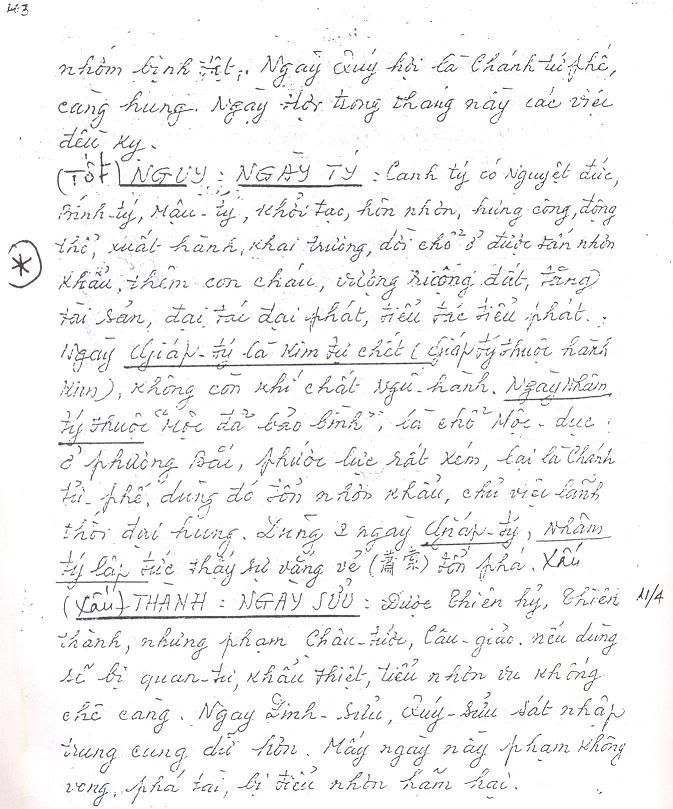 nhóm bịnh tật. Ngày Quý hợi là Chánh tứ phế,
càng hung. Ngày Hợi trong tháng này các việc
đều kỵ.
(TỐT) NGUY : NGÀY TÝ : Canh tý có Nguyệt đức,
Bính-tý, Mậu-tý, khởi tạo, hôn nhơn, hưng công, động
thổ, xuất hành, khai trương, dời chổ ở được tấn nhơn
khẩu, thêm con cháu, vượng ruộng đất, tăng
tài sản, đại tác đại phát, tiểu tác tiểu phát.
Ngày Giáp-tý là Kim tự chết (Giáp tý thuộc hành
Kim), không còn khí chất Ngũ-hành. Ngày Nhâm
tý thuộc "Mộc đả bảo bình", là chổ Mộc-dục
ở phương Bắc, phước lực rất kém, lại là Chánh
tứ-phế, dùng đó tổn nhơn khẩu, chủ việc lãnh
thối đại hung. Dùng 2 ngày Giáp-tý, Nhâm
tý lập tức thấy sự vắng vẻ (蕭索) tổn phá. Xấu
(Xấu) THÀNH : NGÀY SỬU : Được Thiên hỷ, Thiên 11/4
thành, nhưng phạm Châu-tước, Câu-giảo. nếu dùng
sẽ bị quan-tư, khẩu thiệt, tiểu nhơn vu khống
chê càng. Ngày Đinh-sửu, Quý-sửu sát nhập
trung cung dữ hơn. Mấy ngày này phạm không
vong, phá tài, bị tiểu nhơn hãm hại.